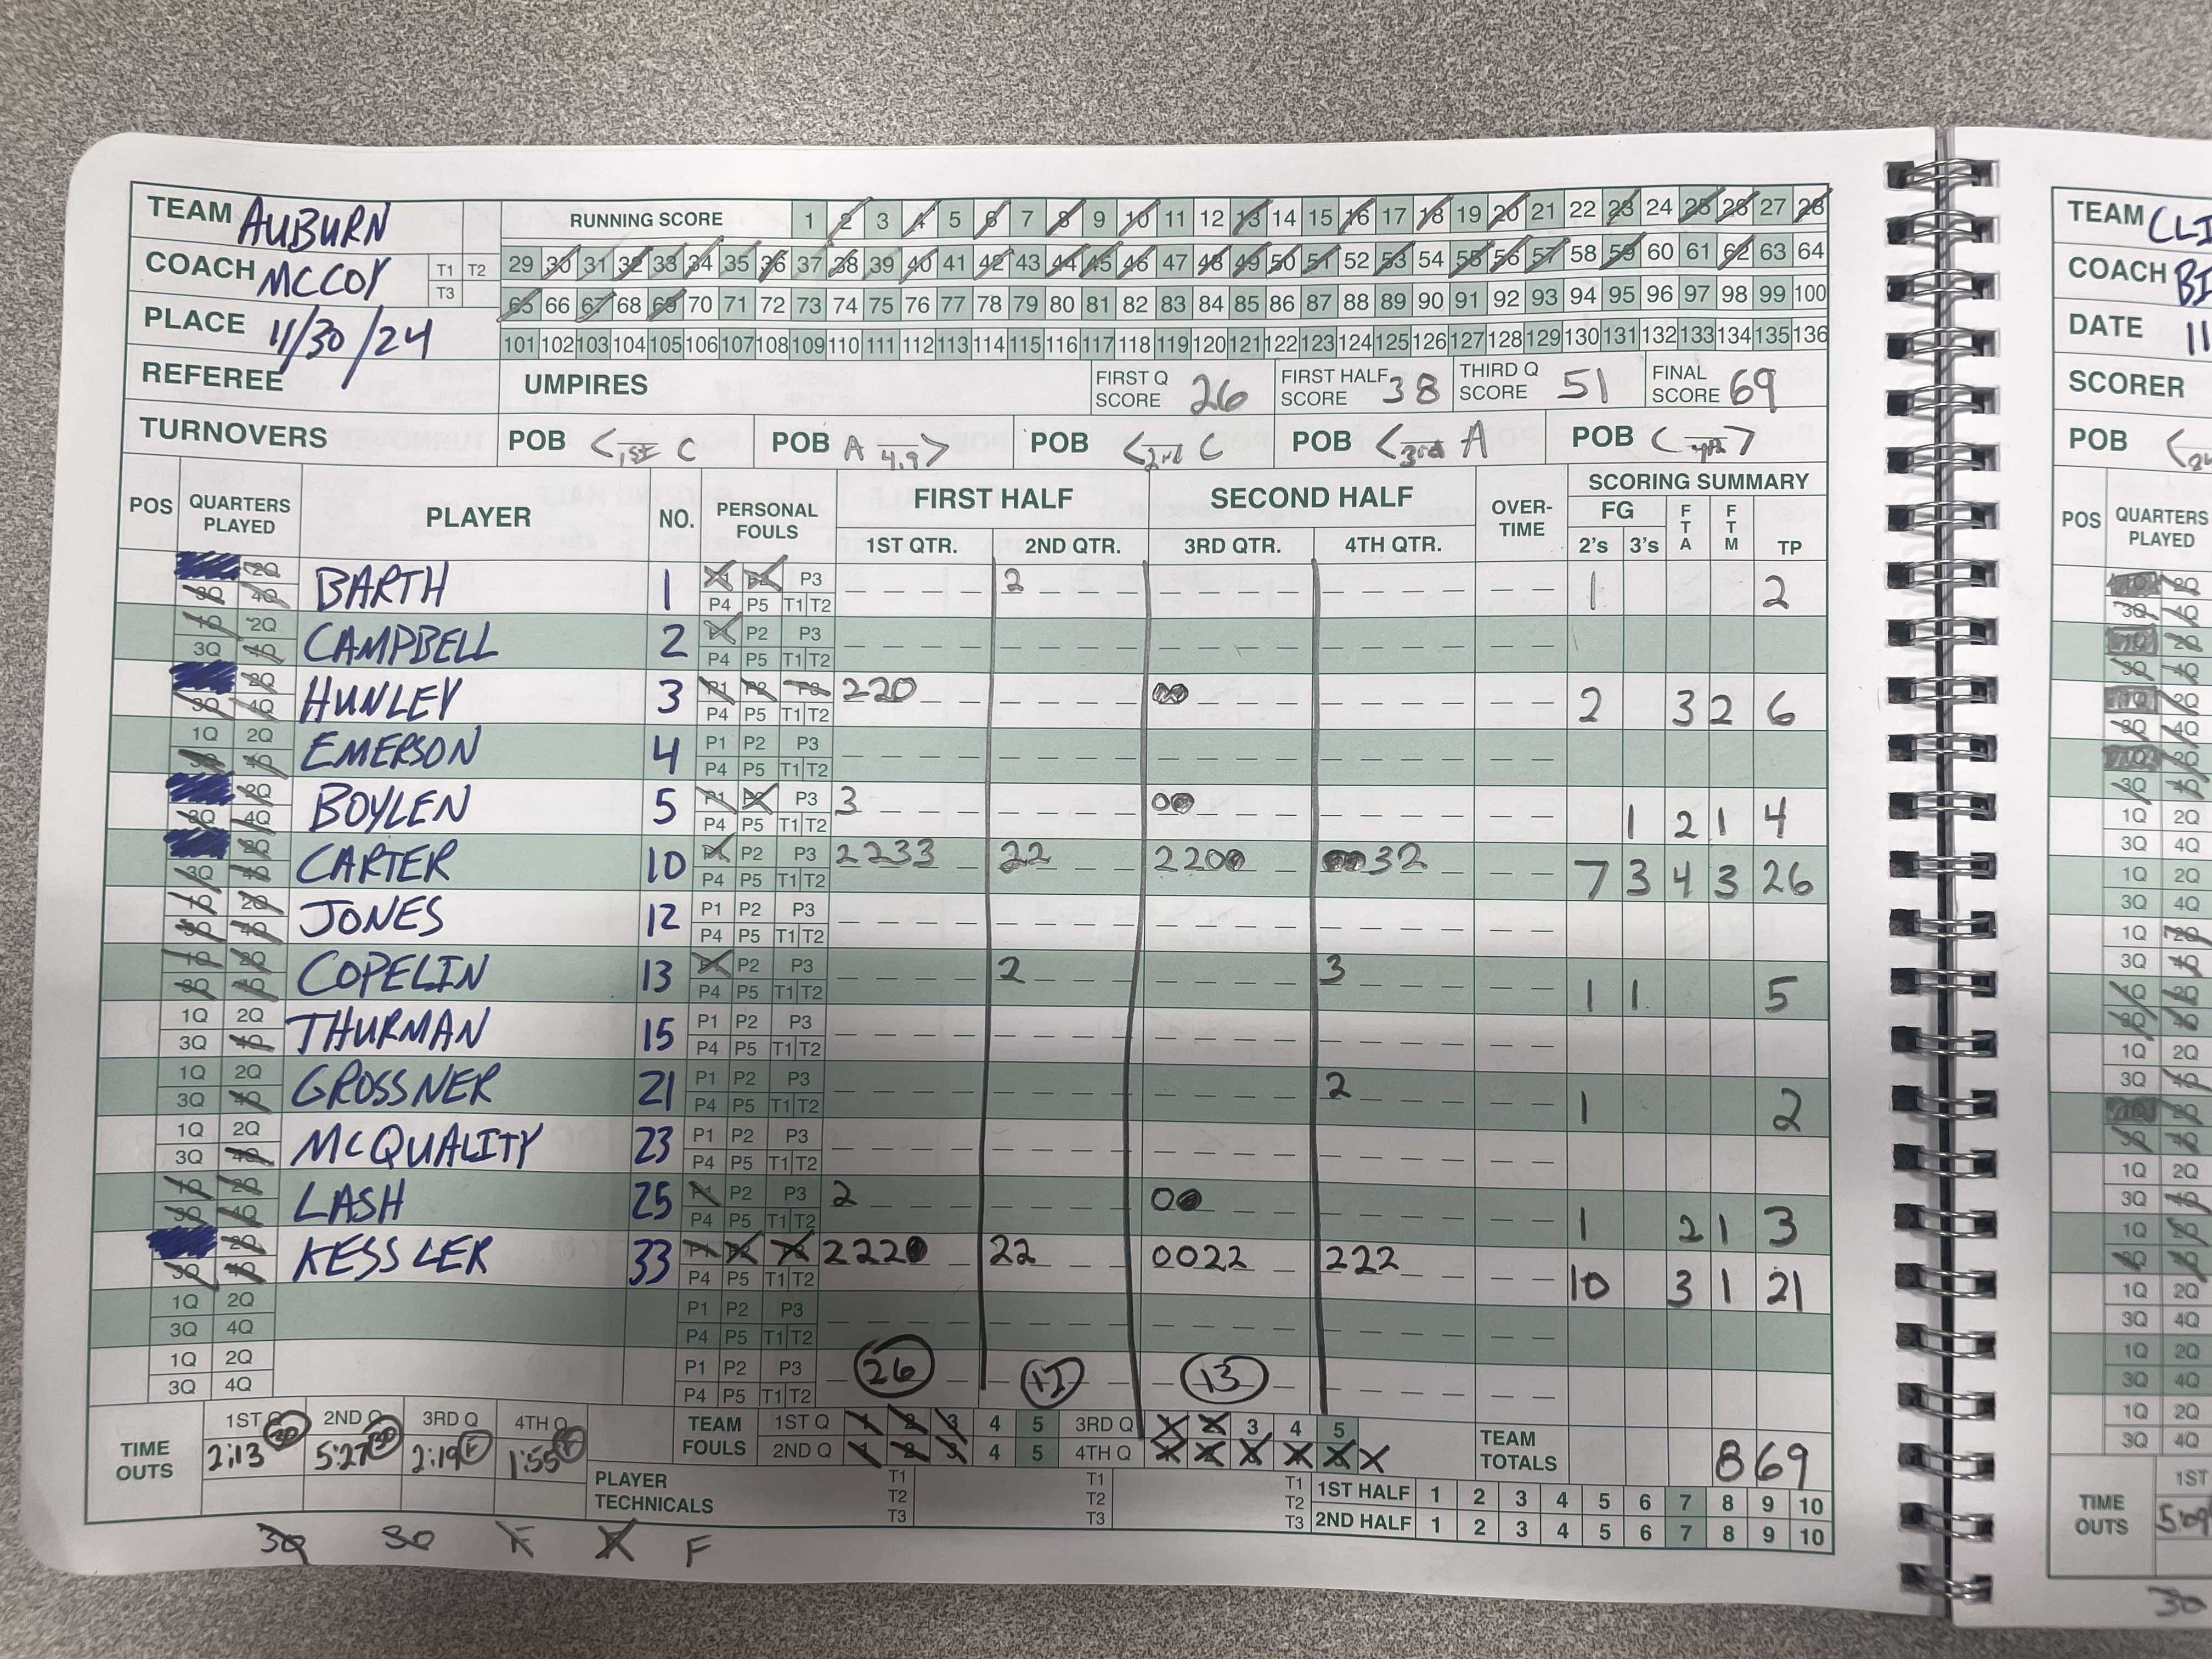 TEAM AUBURN
RUNNING SCORE 1 2 3 4 5 6 7 8 9 10 11 12 13 14 15 16 17 18 19 20 21 22 23 24 25 26 27 28
COACH MCCOY T1 T2 T3
29 30 31 32 33 34 35 36 37 38 39 40 41 42 43 44 45 46 47 48 49 50 51 52 53 54 55 56 57 58 59 60 61 62 63 64
PLACE 11/30/24
65 66 67 68 69 70 71 72 73 74 75 76 77 78 79 80 81 82 83 84 85 86 87 88 89 90 91 92 93 94 95 96 97 98 99 100
101 102 103 104 105 106 107 108 109 110 111 112 113 114 115 116 117 118 119 120 121 122 123 124 125 126 127 128 129 130 131 132 133 134 135 136
REFEREE UMPIRES FIRST Q SCORE 26 FIRST HALF SCORE 38 THIRD Q SCORE 51 FINAL SCORE 69
TURNOVERS POB 1st C POB A POB 2nd C POB 3rd A POB
POS QUARTERS PLAYED PLAYER NO. PERSONAL FOULS FIRST HALF SECOND HALF OVER-TIME SCORING SUMMARY
1ST QTR. 2ND QTR. 3RD QTR. 4TH QTR. FG 2's 3's FTA FTM TP
2Q 3Q 4Q BARTH 1 P1 P2 P3 P4 P5 T1 T2 2 1 2
1Q 2Q 3Q 4Q CAMPBELL 2 P1 P2 P3 P4 P5 T1 T2
2Q 3Q 4Q HUNLEY 3 P1 P2 P3 P4 P5 T1 T2 220 00 2 3 2 6
1Q 2Q 3Q 4Q EMERSON 4 P1 P2 P3 P4 P5 T1 T2
2Q 3Q 4Q BOYLEN 5 P1 P2 P3 P4 P5 T1 T2 3 00 1 2 1 4
2Q 3Q 4Q CARTER 10 P1 P2 P3 P4 P5 T1 T2 2233 22 2200 0032 7 3 4 3 26
1Q 2Q 3Q 4Q JONES 12 P1 P2 P3 P4 P5 T1 T2
1Q 2Q 3Q 4Q COPELIN 13 P1 P2 P3 P4 P5 T1 T2 2 3 1 1 5
1Q 2Q 3Q 4Q THURMAN 15 P1 P2 P3 P4 P5 T1 T2
1Q 2Q 3Q 4Q GROSSNER 21 P1 P2 P3 P4 P5 T1 T2 2 1 2
1Q 2Q 3Q 4Q MCQUALITY 23 P1 P2 P3 P4 P5 T1 T2
1Q 2Q 3Q 4Q LASH 25 P1 P2 P3 P4 P5 T1 T2 2 00 1 2 1 3
2Q 3Q 4Q KESSLER 33 P1 P2 P3 P4 P5 T1 T2 2220 22 0022 222 10 3 1 21
1Q 2Q 3Q 4Q P1 P2 P3 P4 P5 T1 T2
1Q 2Q 3Q 4Q P1 P2 P3 P4 P5 T1 T2 26 13
TIME OUTS 1ST Q 30 2ND Q 30 3RD Q F 4TH Q F
2:13 5:27 2:19 1:55
TEAM FOULS 1ST Q 1 2 3 4 5 3RD Q 1 2 3 4 5
2ND Q 1 2 3 4 5 4TH Q 1 2 3 4 5 X
TEAM TOTALS 8 69
PLAYER TECHNICALS T1 T2 T3 T1 T2 T3 T1 T2 T3
1ST HALF 1 2 3 4 5 6 7 8 9 10
2ND HALF 1 2 3 4 5 6 7 8 9 10
30 30 F F F
TEAM CLI
COACH BI
DATE 11
SCORER
POB
POS QUARTERS PLAYED
1Q 2Q
3Q 4Q
TIME OUTS 1ST
5:09
30